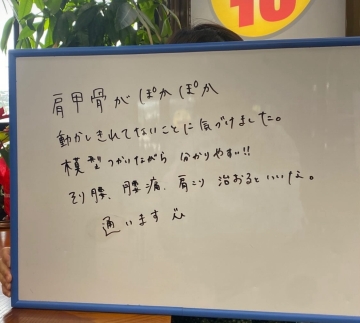 10
肩甲骨がぽかぽか
動かしきれてないことに気づけました。
模型つかいながら 分かりやすい!!
そり腰、腰痛、肩こり 治おるといいな。
通います